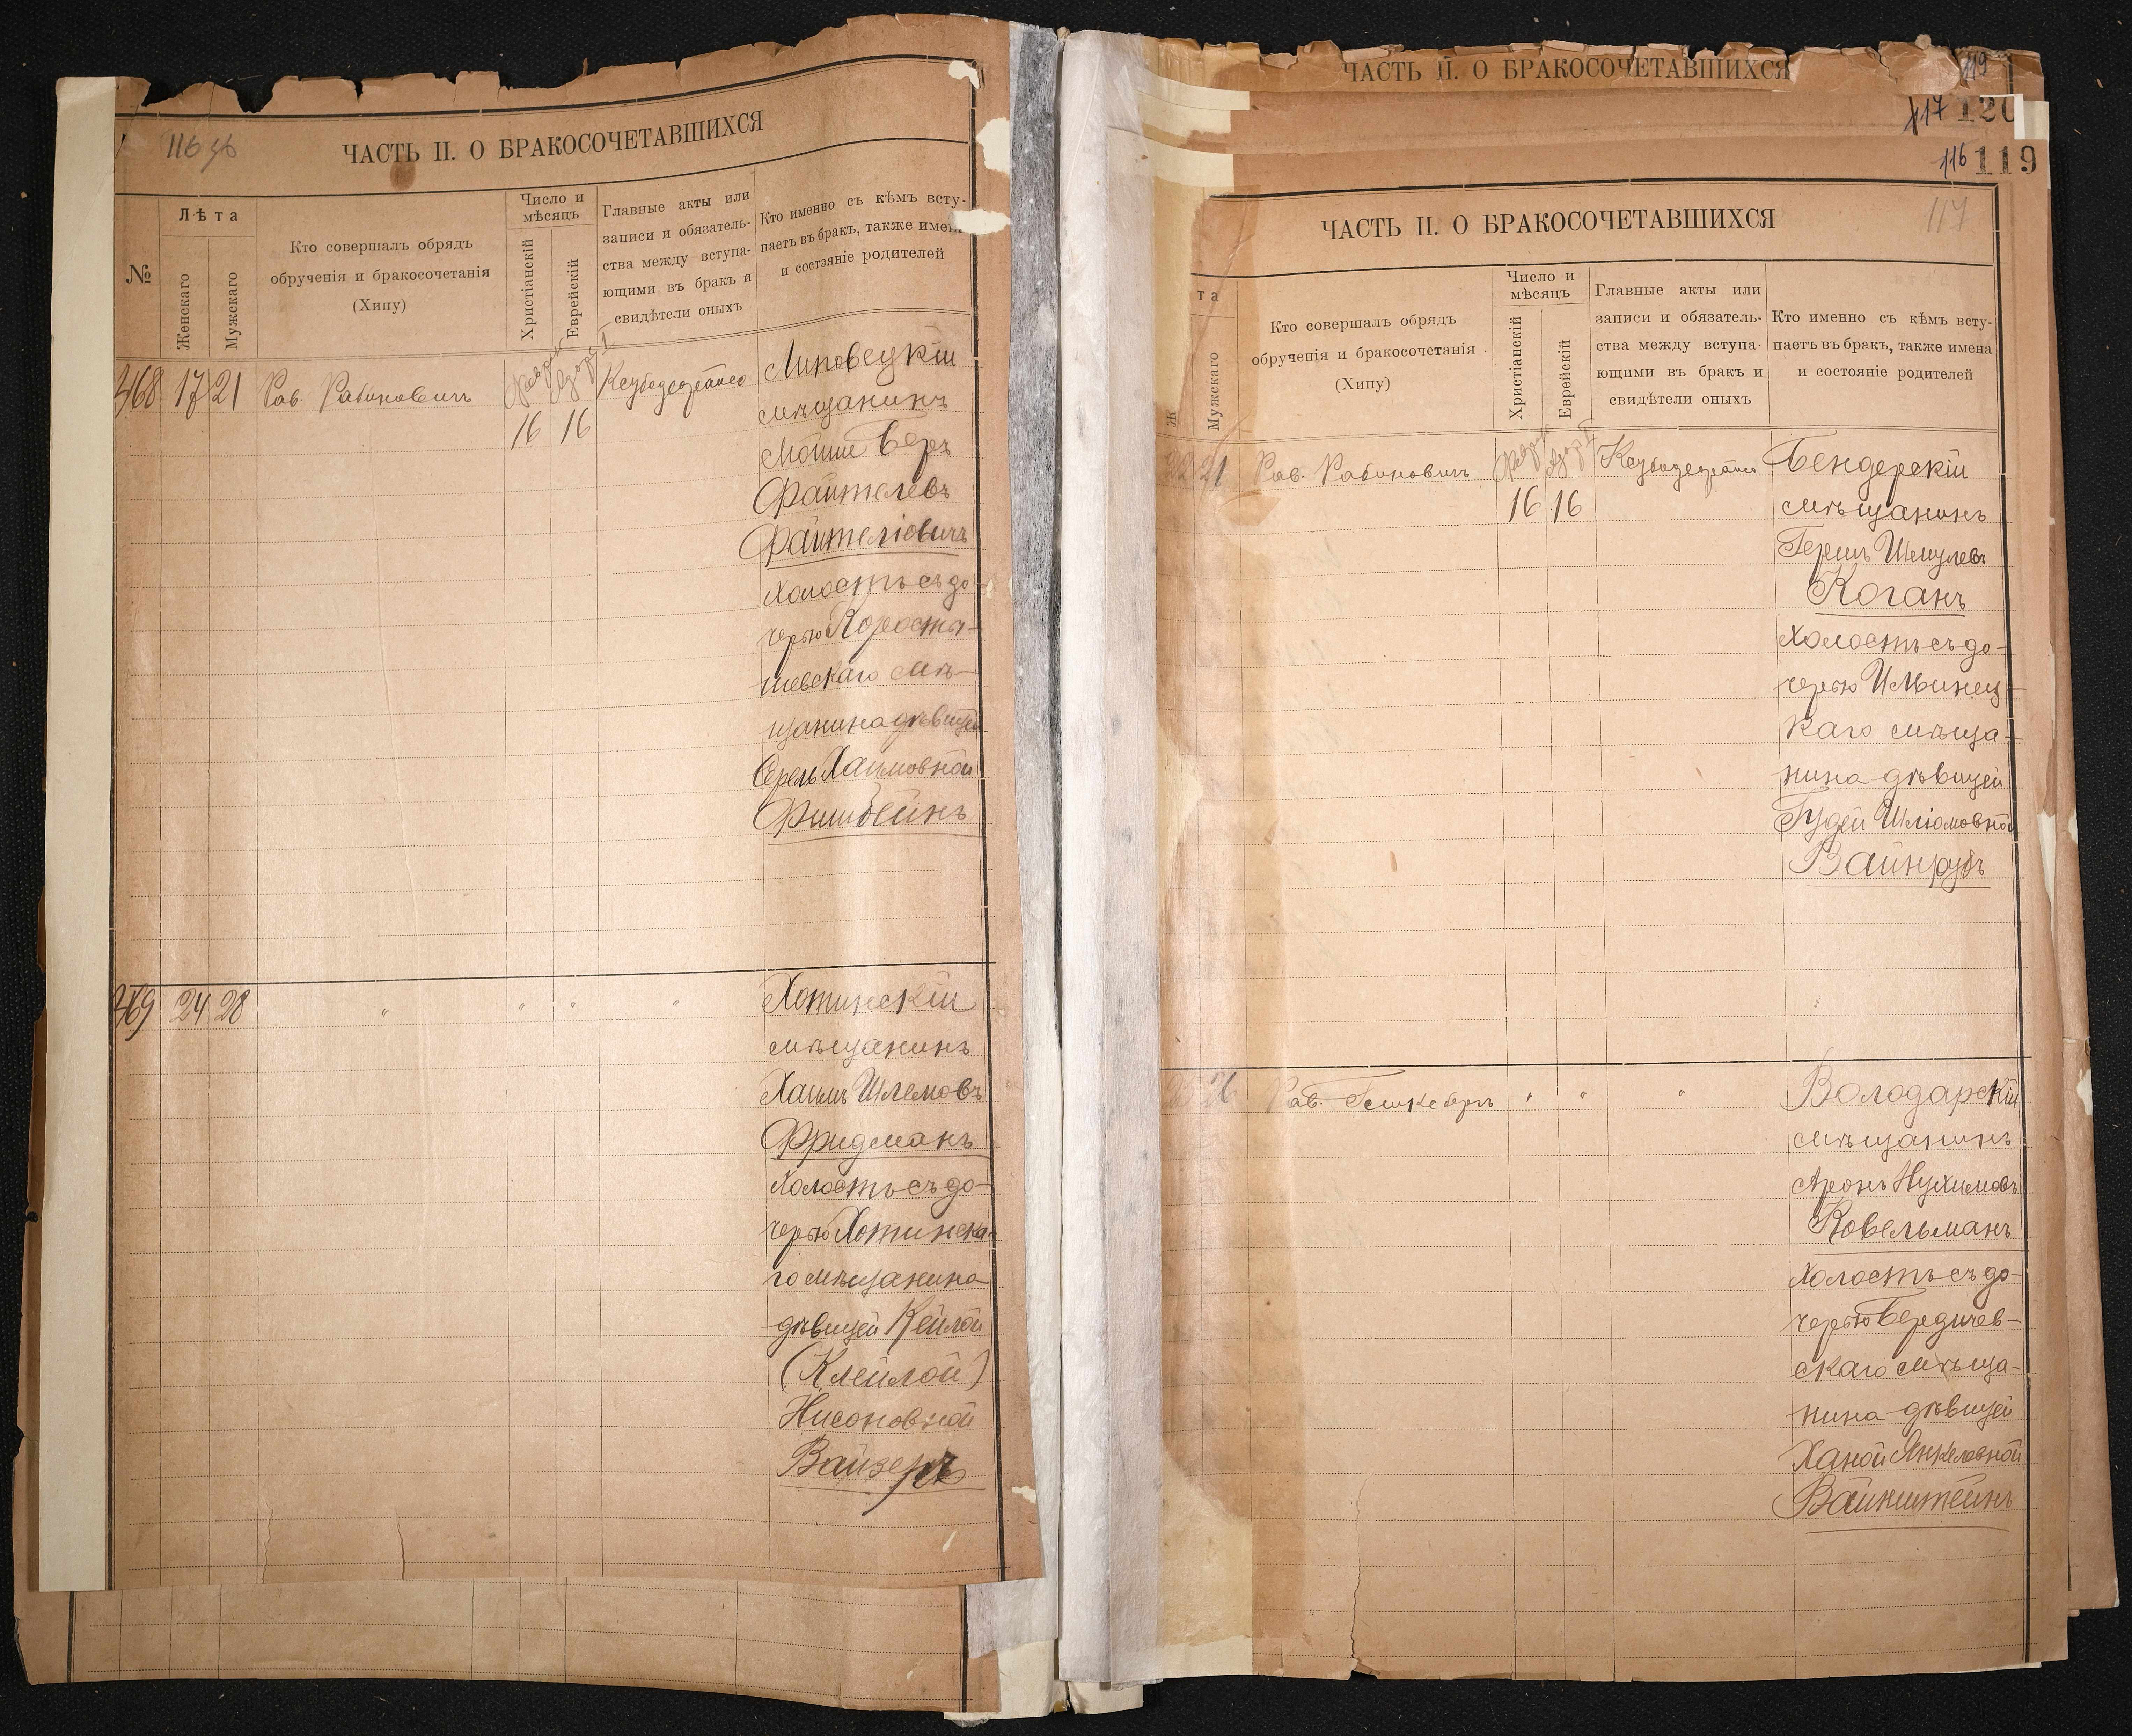 116 об
ЧАСТЬ II. О БРАКОСОЧЕТАВШИХСЯ
№
Лѣта
Женскаго
Мужскаго
Кто совершалъ обрядъ
обрученія и бракосочетанія
(Хипу)
Число и
мѣсяцъ
Христіанскій
Еврейскій
Главные акты или
записи и обязатель-
ства между вступа-
ющими въ бракъ и
свидѣтели оныхъ
Кто именно съ кѣмъ всту-
паетъ въ бракъ, также имена
и состояніе родителей
468 17 21 Рав. Рабиновичъ
16 16
Липовецкій
мѣщанинъ
Мошше Беръ
Файтелевъ
Файтеліовичъ
холостъ съ до-
черью Коросты-
шевскаго мѣ-
щанина дѣвицей
Серель Хаимовной
Фишбейнъ
469 24 28 " " " "
Хотинскій
мѣщанинъ
Хаимъ Шлемовъ
Фридманъ
холостъ съ до-
черью Хотинска-
го мѣщанина
дѣвицей Кейлой
(Клейлой)
Нисоновной
Вайзеръ
ЧАСТЬ II. О БРАКОСОЧЕТАВШИХСЯ
119
117 120
116 119
ЧАСТЬ II. О БРАКОСОЧЕТАВШИХСЯ
117
та
Ж
Мужскаго
Кто совершалъ обрядъ
обрученія и бракосочетанія
(Хипу)
Число и
мѣсяцъ
Христіанскій
Еврейскій
Главные акты или
записи и обязатель-
ства между вступа-
ющими въ бракъ и
свидѣтели оныхъ
Кто именно съ кѣмъ всту-
паетъ въ бракъ, также имена
и состояніе родителей
22 21 Рав. Рабиновичъ
16 16
Бендерскій
мѣщанинъ
Гершъ Шмулевъ
Коганъ
холостъ съ до-
черью Ильинец-
каго мѣща-
нина дѣвицей
Гудей Шліомовной
Вайнрубъ
26 Рав. " " "
Володарскій
мѣщанинъ
Аронъ Нухимовъ
Ковельманъ
холостъ съ до-
черью Бердичев-
скаго мѣща-
нина дѣвицей
Ханой Янкелевной
Вайнштейнъ